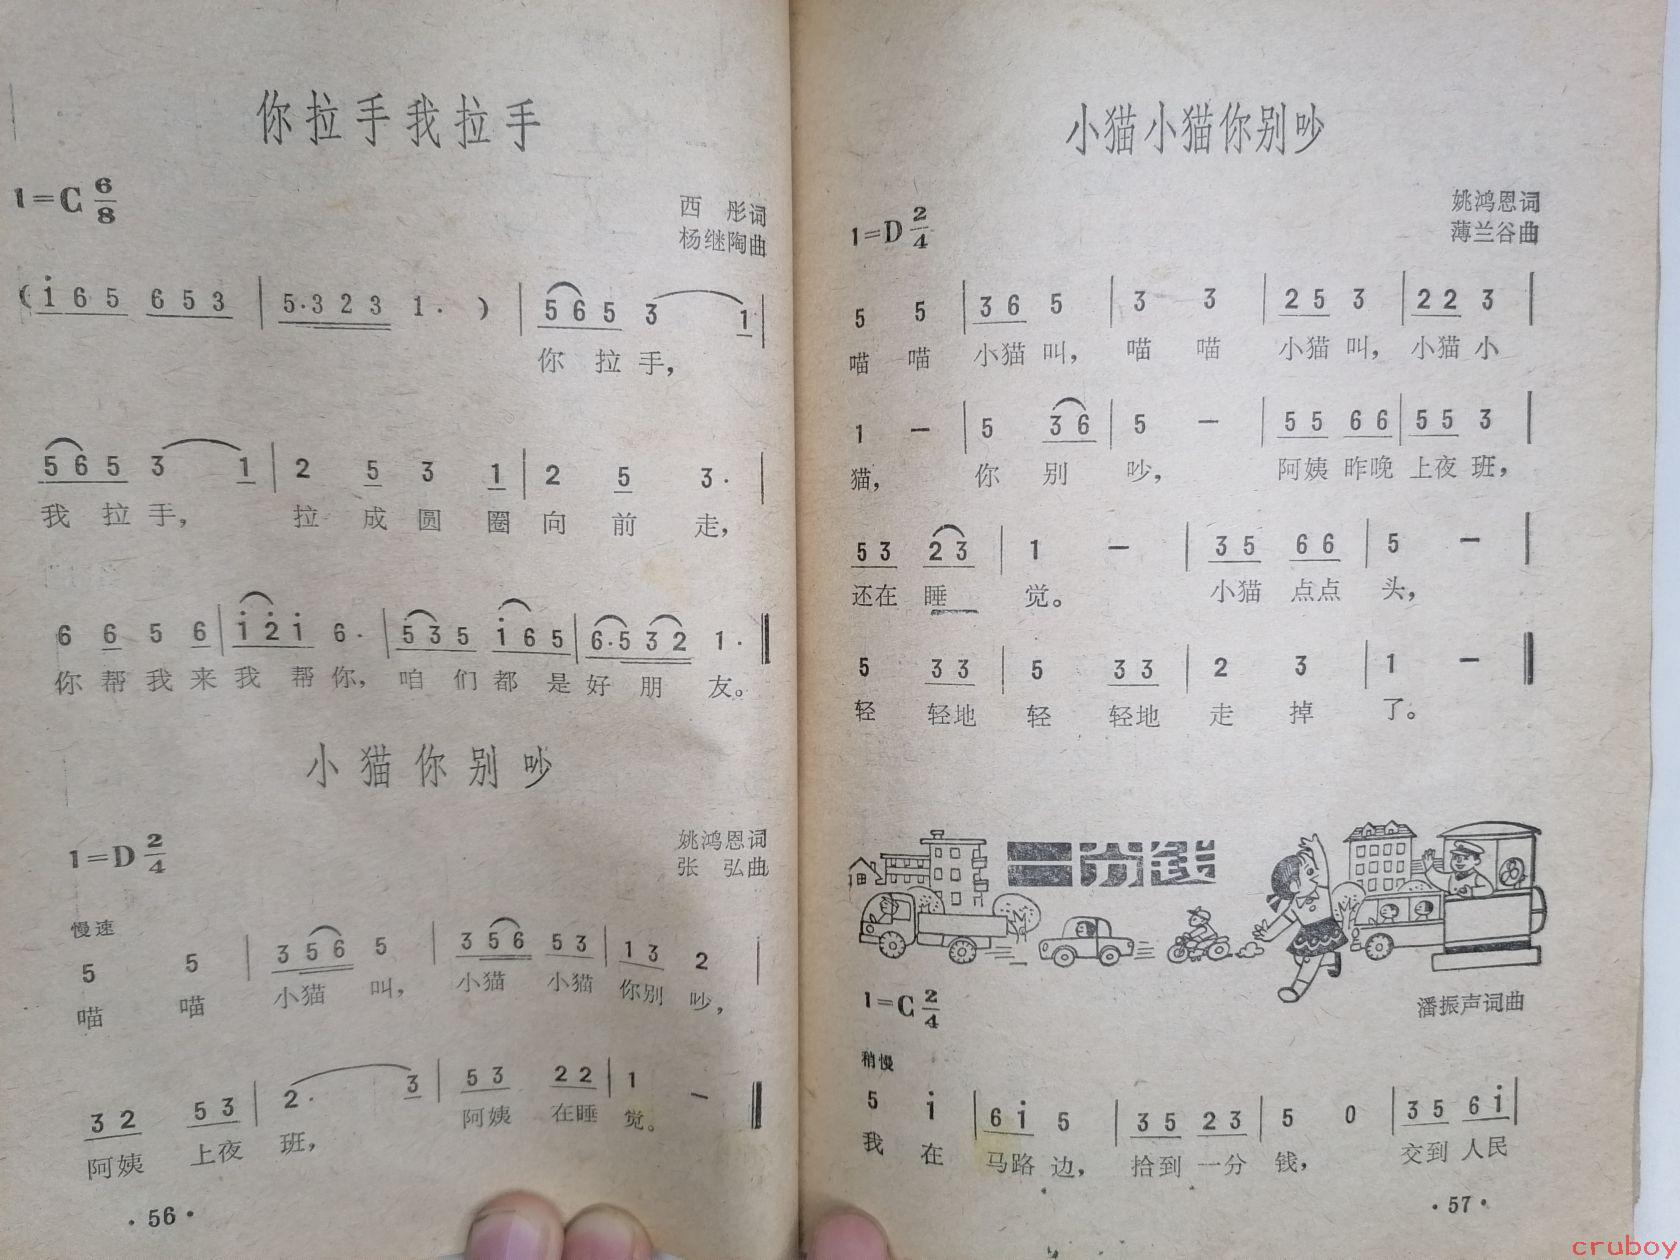 你拉手我拉手
1=C 6/8
西 彤词
杨继陶曲
( i̇ 6 5 6 5 3 | 5·3 2 3 1· ) | 5 6 5 3 1 |
你 拉 手，
5 6 5 3 1 | 2 5 3 1 | 2 5 3· |
我 拉 手， 拉 成 圆 圈 向 前 走，
6 6 5 6 | i̇ 2̇ i̇ 6· | 5 3 5 i̇ 6 5 | 6·5 3 2 1· ‖
你 帮 我 来 我 帮 你， 咱 们 都 是 好 朋 友。
小猫你别吵
1=D 2/4
姚鸿恩词
张 弘曲
慢速
5 5 | 3 5 6 5 | 3 5 6 5 3 | 1 3 2 |
喵 喵 小猫 叫， 小猫 小猫 你别 吵，
3 2 5 3 | 2· 3 | 5 3 2 2 | 1 – ‖
阿姨 上夜 班， 阿姨 在睡 觉。
·56·
小猫小猫你别吵
1=D 2/4
姚鸿恩词
薄兰谷曲
5 5 | 3 6 5 | 3 3 | 2 5 3 | 2 2 3 |
喵 喵 小猫 叫， 喵 喵 小猫 叫， 小猫 小
1 – | 5 3 6 | 5 – | 5 5 6 6 | 5 5 3 |
猫， 你 别 吵， 阿姨 昨晚 上夜 班，
5 3 2 3 | 1 – | 3 5 6 6 | 5 – |
还在 睡 觉。 小猫 点点 头，
5 3 3 | 5 3 3 | 2 3 | 1 – ‖
轻 轻地 轻 轻地 走 掉 了。
一分钱
1=C 2/4
潘振声词曲
稍慢
5 i̇ | 6 i̇ 5 | 3 5 2 3 | 5 0 | 3 5 6 i̇ |
我 在 马路 边， 拾到 一分 钱， 交到 人民
·57·
cruboy